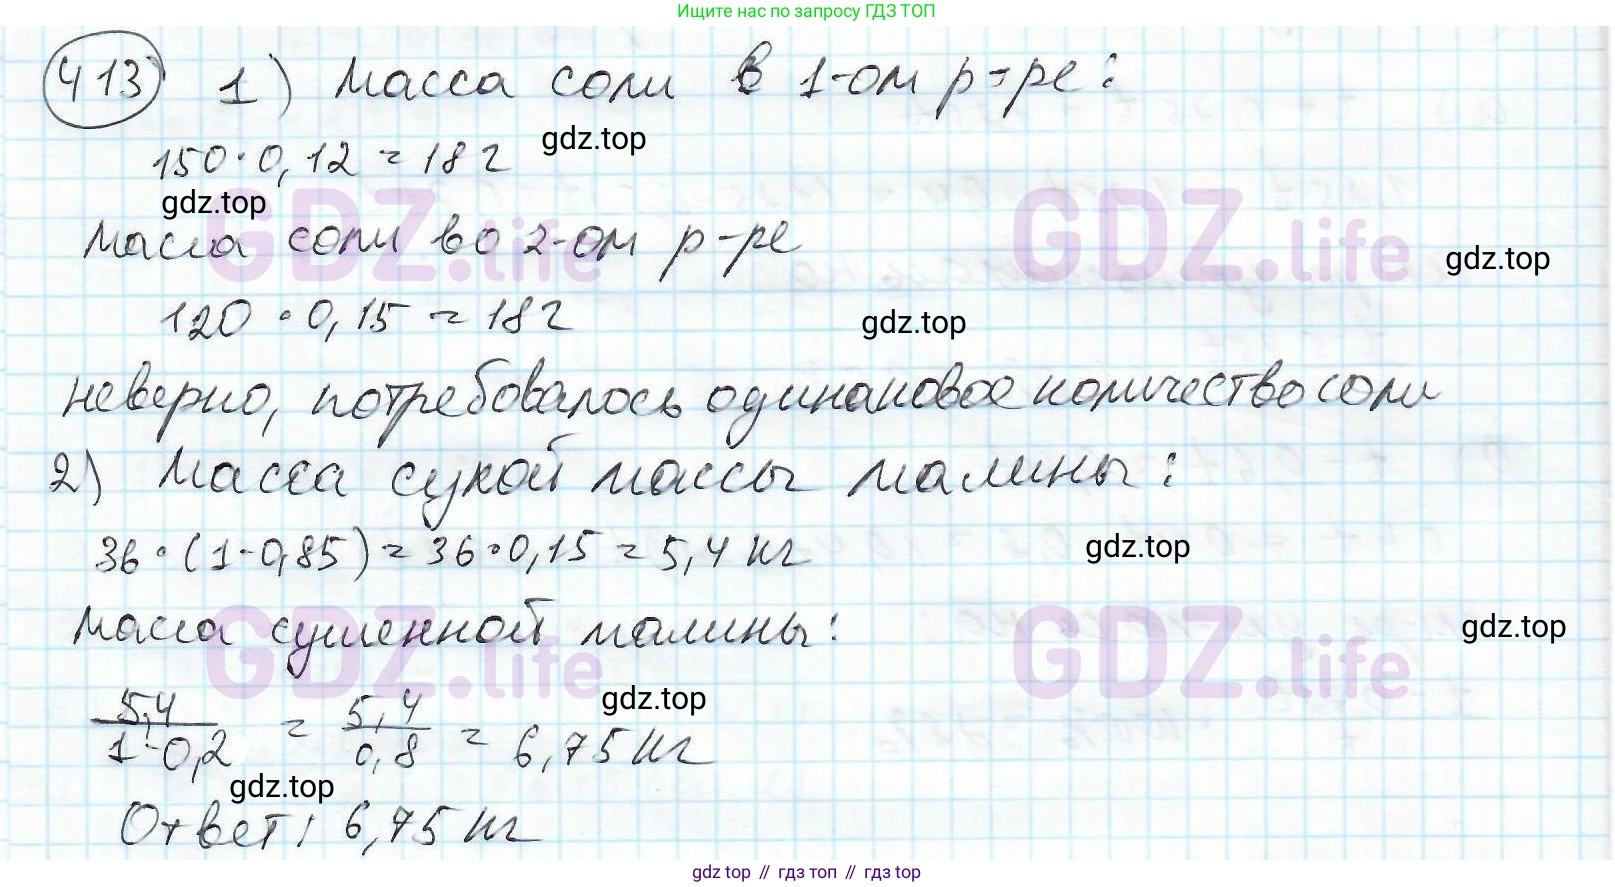 Ищите нас по запросу ГДЗ ТОП
413 1) Масса соли в 1-ом р-ре:
gdz.top
150·0,12 = 18 г
gdz.top
GDZ.life GDZ.life
Масса соли во 2-ом р-ре
gdz.top
120·0,15 = 18 г
gdz.top
неверно, потребовалось одинаковое количество соли
2) Масса сухой массы малины:
36·(1-0,85) = 36·0,15 = 5,4 кг
gdz.top
Масса сушенной малины:
gdz.top
GDZ.life GDZ.life
gdz.top
5,4/1-0,2 = 5,4/0,8 = 6,75 кг
gdz.top
Ответ: 6,75 кг
gdz top // гдз топ // гдз top